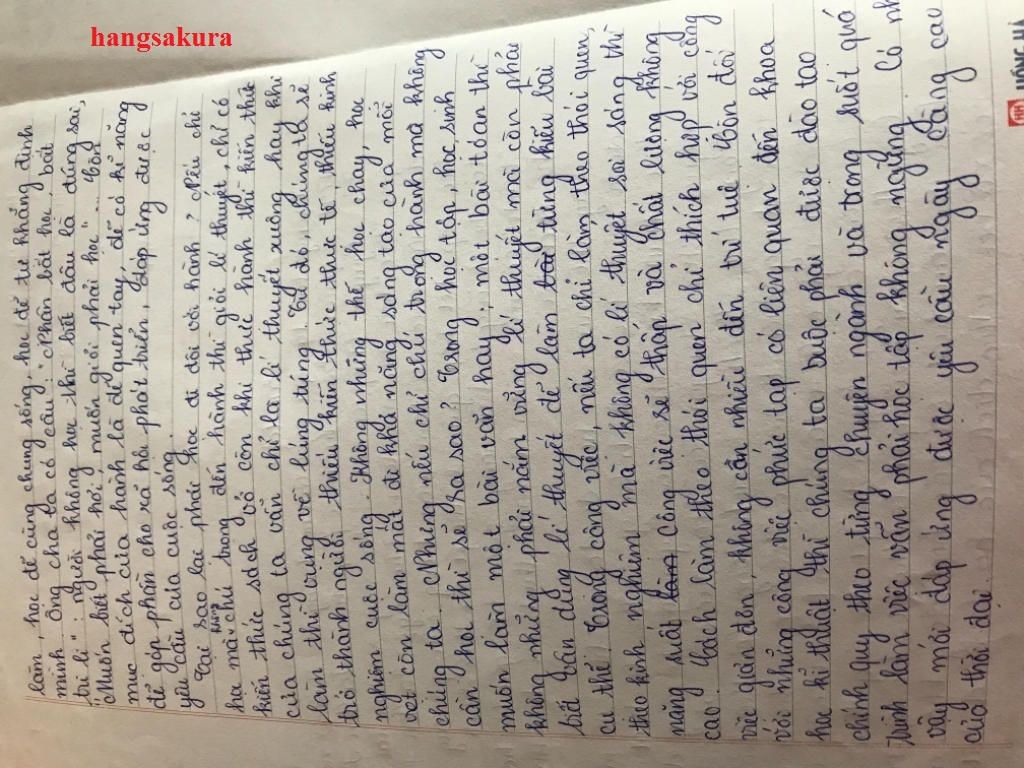 hangsakura
làm, học để cùng chung sống, học để tự khẳng định
mình". Ông cha ta có câu: "Nhân bất học, bất
tri lí": người không học thì biết đâu là đúng sai,
"Muốn biết phải hỏi, muốn giỏi phải học"... Còn
mục đích của hành là để quen tay, để có kĩ năng
để góp phần cho xã hội phát triển, đáp ứng được
yêu cầu của cuộc sống.
Tại sao lại phải học đi đôi với hành? Nếu chỉ
học mà không chú trọng đến hành thì giỏi lí thuyết, chỉ có
kiến thức sách vở còn khi thực hành thì kiến thức
của chúng ta vẫn chỉ là lí thuyết xuông hay khi
làm thì vụng về lúng túng. Từ đó, chúng ta sẽ
trở thành người thiếu kiến thức thực tế, thiếu kinh
nghiệm cuộc sống. Không những thế học chay, học
vẹt còn làm mất đi khả năng sáng tạo của mỗi
chúng ta. Nhưng nếu chỉ chú trọng hành mà không
cần học thì sẽ ra sao? Trong học tập, học sinh
muốn làm một bài văn hay, một bài toán thì
không những phải nắm vững lí thuyết mà còn phải
biết vận dụng lí thuyết để làm từng kiểu bài
cụ thể. Trong công việc, nếu ta chỉ làm theo thói quen,
theo kinh nghiệm mà không có lí thuyết soi sáng thì
năng suất công việc sẽ thấp và chất lượng không
cao. Cách làm theo thói quen chỉ thích hợp với công
việc giản đơn, không cần nhiều đến trí tuệ. Còn đối
với những công việc phức tạp có liên quan đến khoa
học kĩ thuật thì chúng ta buộc phải được đào tạo
chính quy theo từng chuyên ngành và trong suốt quá
trình làm việc vẫn phải học tập không ngừng. Có nh
vậy mới đáp ứng được yêu cầu ngày càng cao
của thời đại.
HỒNG HÀ